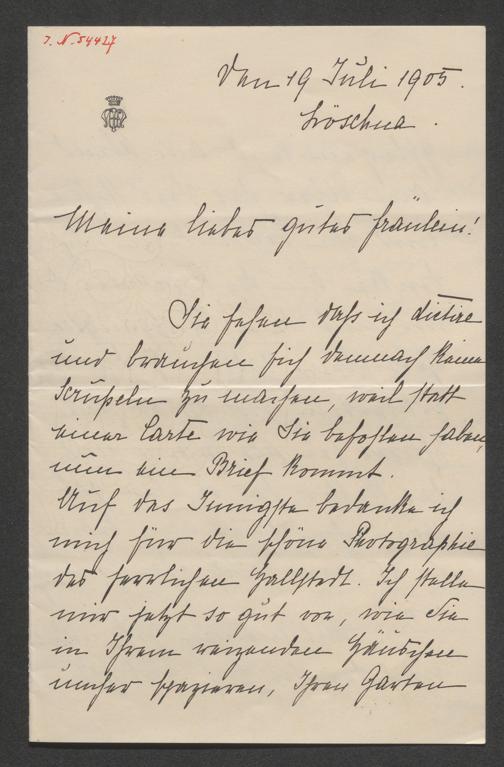 J. N. 54427
Den 19 Juli 1905.
Löschna.
Meine liebes gutes fräulein!
Sie sehen daß ich dictire
und brauchen sich demnach keine
Scrupeln zu machen, weil statt
einer Carte wie Sie befohlen haben,
nun ein Brief kommt.
Auf das Innigste bedanke ich
mich für die schöne Photographie
des herrlichen Hallstadt. Ich stelle
mir jetzt so gut vor, wie Sie
in Ihrem reizenden Häuschen
umher spazieren, Ihren Garten